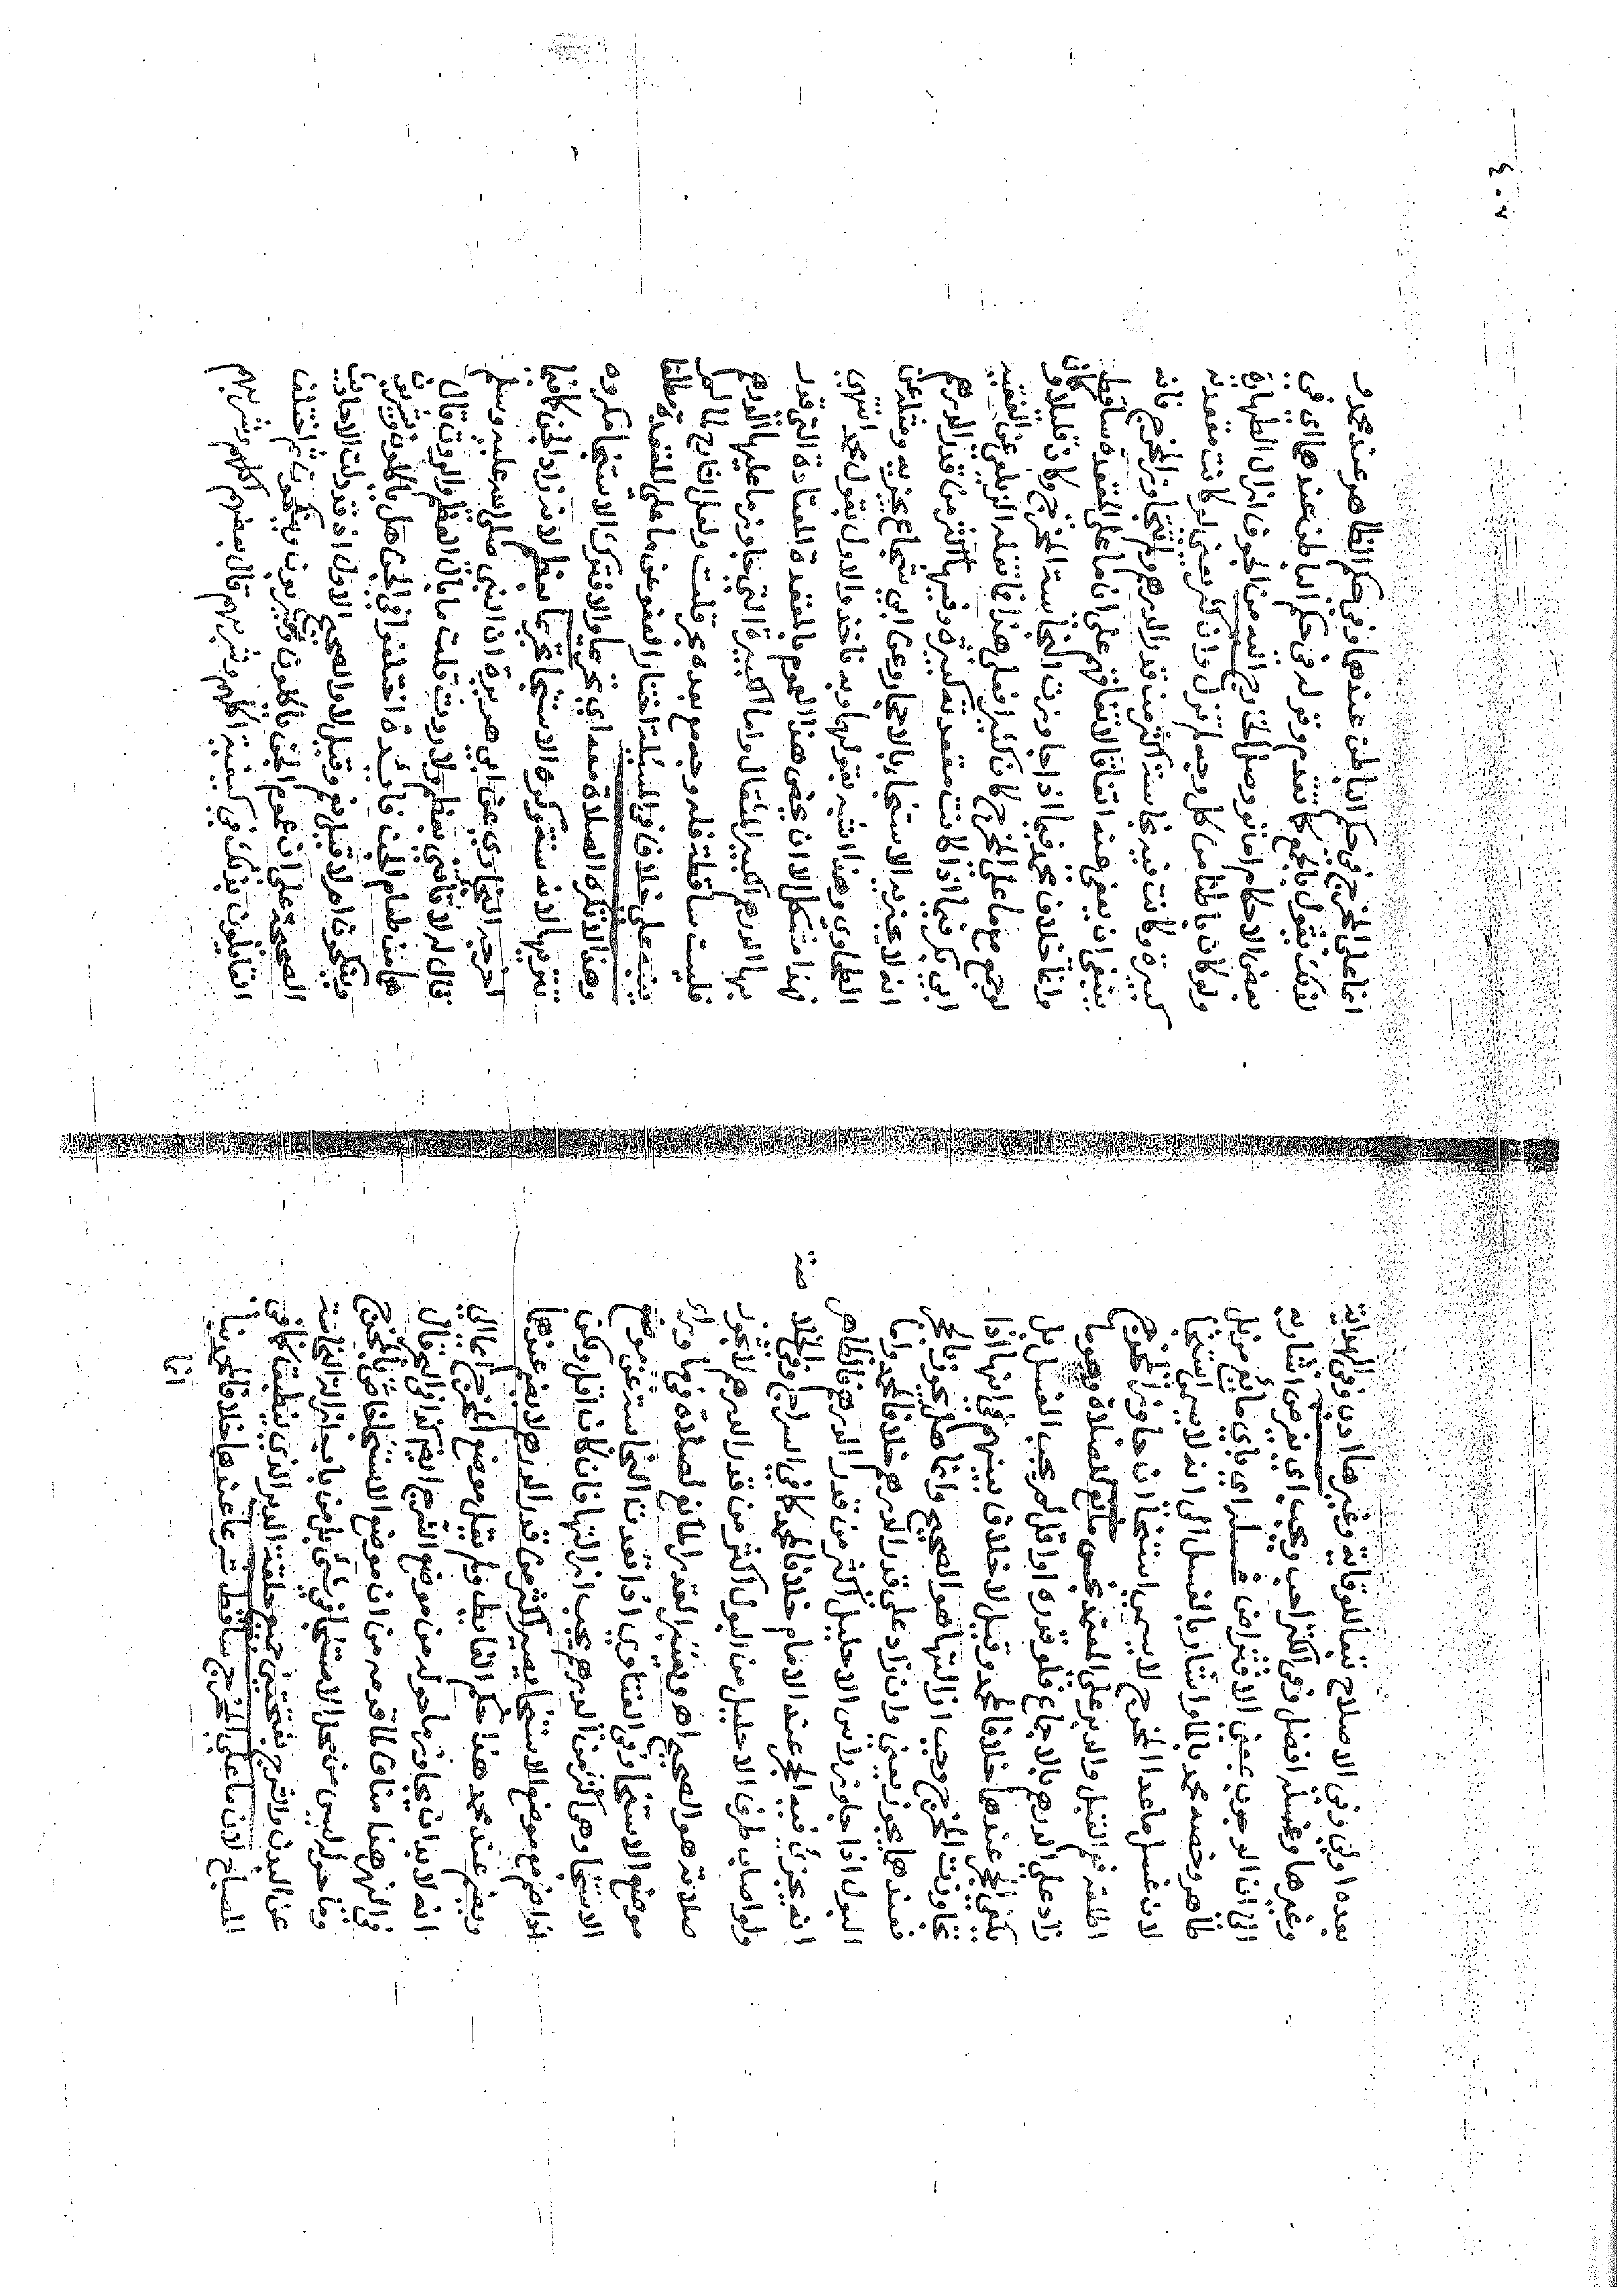 بعده اولى وفى الاصلاح تبعا للوقاية وغيرها ادب وفى الهداية
وغيرها وغسله افضل وفى الكنز احب ويجب اى يفرض اشار به
الى ان الوجوب بمعنى الافتراض غسله اى باى مائع مزيل
طاهر وخصه محمد بالماء واشار بالغسل الى انه لا يسمى استنجاء
لان غسل ما عدا المخرج لا يسمى استنجاء ان جاوز المخرج
اطلقه فعم القبل والدبر على المعتمد نجس مانع للصلاة وهو ما
زاد على الدرهم بالاجماع فلو قدره او اقل لم يجب الغسل بل
يكفى الحجر عندهما خلافا لمحمد وقيل لا خلاف بينهم فى انها اذا
تجاوزت المخرج وجب ازالتها هو الصحيح وانما هل يجوز بالحجر
فعندهما يجوز يعنى وان زاد على قدر الدرهم خلافا لمحمد واما
البول اذا جاوز راس الاحليل اكثر من قدر الدرهم فالظاهر
انه يجزئ فيه الحجر عند الامام خلافا لمحمد كما فى السراج وفى الخلا صة
ولو اصاب طرف الاحليل من البول اكثر من قدر الدرهم لا تجوز
صلاته هو الصحيح اهـ ويعتبر القدر المانع لصلاة فيما وراء
موضع الاستنجاء وفى الفتاوى اذا تعدت النجاسة عن موضع
الاستنجاء وهى اكثر من الدرهم يجب ازالتها فان كان اقل ولكن
اذا ضم مع موضع الاستنجاء يصير اكثر من قدر الدرهم لا يضم عندهما
ويضم عند محمد هذا حكم الغائط ولم يقل موضع المخرج ايماء الى
انه لا بد ان يجاوز ما حوله من موضع الشرج ايضا كذا فى البحر قال
فى النهر هذا مناف لما قدمه من ان موضع الاستنجاء خاص بالمخرج
وما حوله ليس من محل الاستنجاء فى شئ بل من باب ازالة النجاسة
عن البدن والشرج بفتحتين جمع حلقة الدبر الذى ينطبق كما فى
المصباح لان ما على المخرج ساقط شرعا عندهما خلافا لمحمد بناء
انما
٢٠٣
انما على المخرج فى حكم الباطن عندهما وفى حكم الظاهر عند محمد و
لذلك يقول بالجمع كما تقدم وقوله فى حكم الباطن عندهما اى فى
بعض الاحكام اما لو وصل الخارج اليه من الجوف انزل الطهارة
ولو كان باطنا من كل وجه لم تزل وان كثر يعنى لو كانت مقعدته
كبيرة وكانت فيه نجاسة اكثر من قدر الدرهم ولم تتجاوز المخرج فانه
ينبغى ان يعفى عنه اتفاقا لاتفاقهم على ان ما على المقعدة ساقط
وانما خلاف محمد فيما اذا جاوزت النجاسة المخرج وكان قليلا وكان
لو جمع مع ما على المخرج كان كثيرا فعلى هذا فما نقله الزيلعى عن الفقيه
ابى بكر فيما اذا كانت مقعدته كبيرة وفيها اكثر من قدر الدرهم
انه لا يجزيه الاستنجاء بالاحجار وعن ابن شجاع يجزيه ومثله عن
الطحاوى وهذا اشبه بقولهما وبه ناخذ والاول بقول محمد انتهى
فهذا مشكل الا ان يخص هذا العموم بالمقعدة المعتادة التى قدر
بها الدرهم الكبير المثقال واما الكبيرة التى جاوز ما عليها الدرهم
فليست ساقطة فله وجه مع بعده بحر قلت ولعل الشارح لما لم
يثبت على خلاف فى المسئلة اختار العفو عن ما على المقعدة مطلقا
وهذا لا تكره الصلاة معه اى تحريما والا فترك الاستنجاء مكروه
تنزيها لانه سنة وكره الاستنجاء تحريما بعظم لانه زاد الجن كما فيما
اخرجه البخارى عن ابى هريرة ان النبى صلى الله عليه وسلم
قال له لا تاتنى بعظم ولا روث قلت ما بال العظم والروث قال
هما من طعام الجن فائدة اختلفوا فى الجن هل ياكلون ويشربون
ويتناكحون ام لا قيل نعم وقيل لا والصحيح الاول اذ قد دلت الاحاديث
الصحيحة على ان عموم الجن ياكلون ويشربون ويتناكحون ثم اختلف
القائلون بذلك فى كيفية اكلهم وشربهم فقال بعضهم اكلهم وشربهم